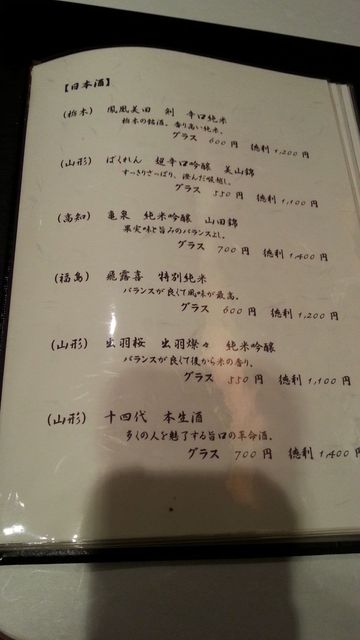 【日本酒】
(栃木) 鳳凰美田 剣 辛口純米
栃木の銘酒。香り高い純米。
グラス 600円 徳利1,200円
(山形) ばくれん 超辛口吟醸 美山錦
すっきりさっぱり、澄んだ喉越し。
グラス 550円 徳利1,100円
(高知) 亀泉 純米吟醸 山田錦
果実味と旨みのバランスよし。
グラス 700円 徳利1,400円
(福島) 飛露喜 特別純米
バランスが良くて風味が最高。
グラス 600円 徳利1,200円
(山形) 出羽桜 出羽燦々 純米吟醸
バランスが良くて後から米の香り。
グラス 550円 徳利1,100円
(山形) 十四代 本生酒
多くの人を魅了する旨口の革命酒。
グラス 700円 徳利1,400円